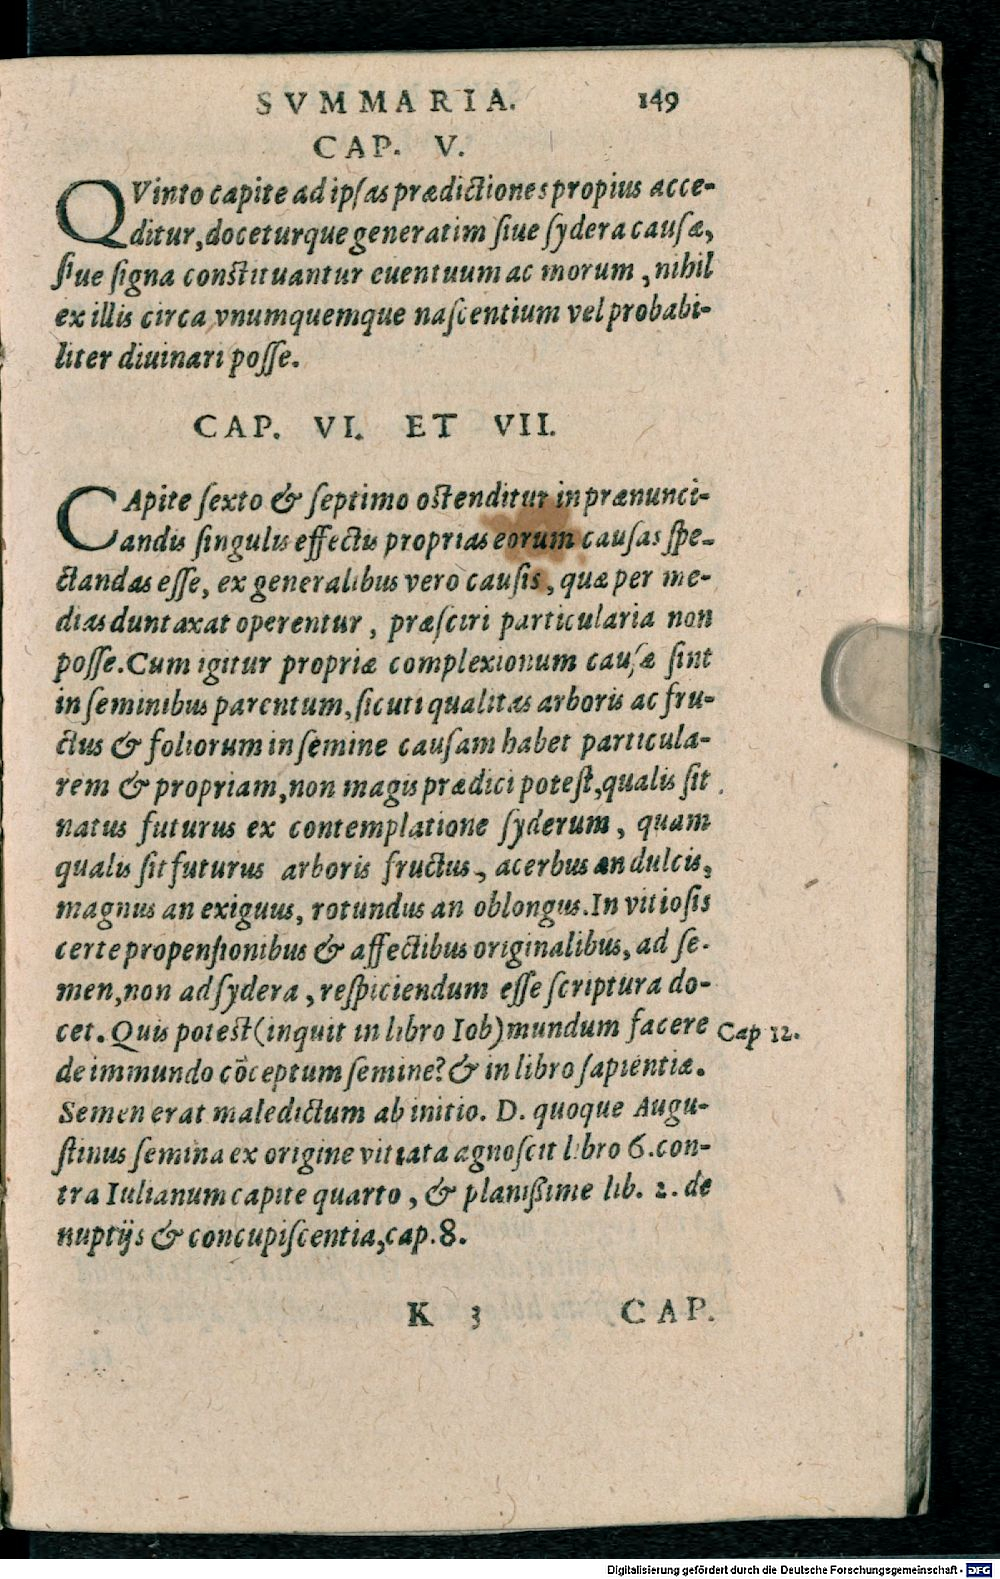 SVMMARIA. 149
CAP. V.
QVinto capite ad ipſas prædictiones propius acce-
ditur, doceturque generatim ſiue ſydera cauſæ,
ſiue ſigna constituantur euentuum ac morum, nihil
ex illis circa vnumquemque naſcentium vel probabi-
liter diuinari poſſe.
CAP. VI. ET VII.
CApite ſexto & ſeptimo ostenditur in prænunci-
andis ſingulis effectis proprias eorum cauſas ſpe-
ctandas eſſe, ex generalibus vero cauſis, quæ per me-
dias duntaxat operentur, præſciri particularia non
poſſe. Cum igitur propriæ complexionum cauſæ ſint
in ſeminibus parentum, ſicuti qualitas arboris ac fru-
ctus & foliorum in ſemine cauſam habet particula-
rem & propriam, non magis prædici poteſt, qualis ſit
natus futurus ex contemplatione ſyderum, quam
qualis ſit futurus arboris fructus, acerbus an dulcis,
magnus an exiguus, rotundus an oblongus. In vitioſis
certe propenſionibus & affectibus originalibus, ad ſe-
men, non ad ſydera, reſpiciendum eſſe ſcriptura do-
cet. Quis potest (inquit in libro Iob) mundum facere Cap 12.
de immundo cõceptum ſemine? & in libro ſapientiæ.
Semen erat maledictum ab initio. D. quoque Augu-
ſtinus ſemina ex origine vitiata agnoſcit libro 6. con-
tra Iulianum capite quarto, & planißime lib. 2. de
nuptijs & concupiſcentia, cap. 8.
K 3 CAP.
Digitalisierung gefördert durch die Deutsche Forschungsgemeinschaft - DFG